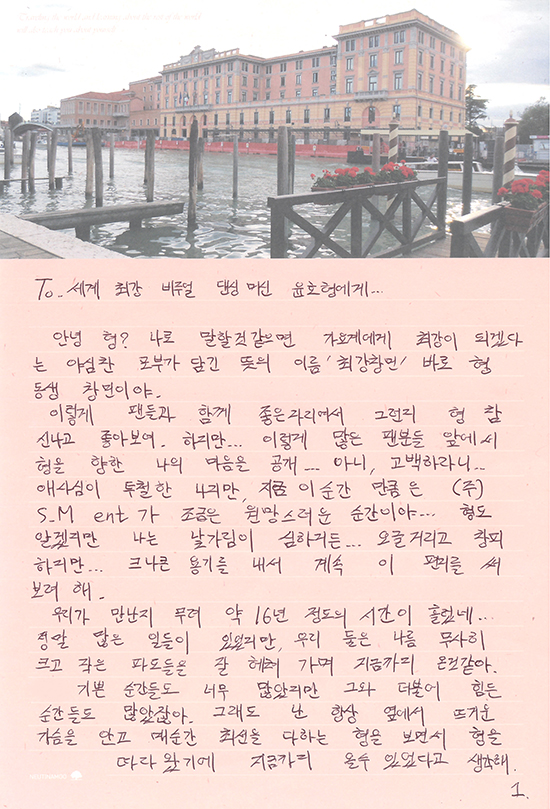 To_ 세계 최강 비주얼 댄싱머신 윤호형에게...
안녕 형? 나로 말할것 같으면 가요계에게 최강이 되겠다
는 야심찬 포부가 담긴 뜻의 이름 '최강창민' 바로 형
동생 창민이야.
이렇게 팬들과 함께 좋은자리여서 그런지 형 참
신나고 좋아보여. 하지만... 이렇게 많은 팬분들 앞에서
형을 향한 나의 마음을 공개... 아니, 고백하라니...
애사심이 투철한 나지만, 지금 이순간 만큼은 (주)
S_M ent가 조금은 원망스러운 순간이야... 형도
알겠지만 나는 낯가림이 심하거든... 오글거리고 창피
하지만... 크나큰 용기를 내서 계속 이 편지를 써
보려 해.
우리가 만난지 무려 약 16년 정도의 시간이 흘렀네...
정말 많은 일들이 있었지만, 우리 둘은 나름 무사히
크고 작은 파도들을 잘 헤쳐 가며 지금까지 온것같아.
기쁜 순간들도 너무 많았지만 그와 더불어 힘든
순간들도 많았잖아. 그래도 난 항상 옆에서 뜨거운
가슴을 안고 매순간 최선을 다하는 형을 보면서 형을
따라 왔기에 지금까지 올수 있었다고 생각해.
1.